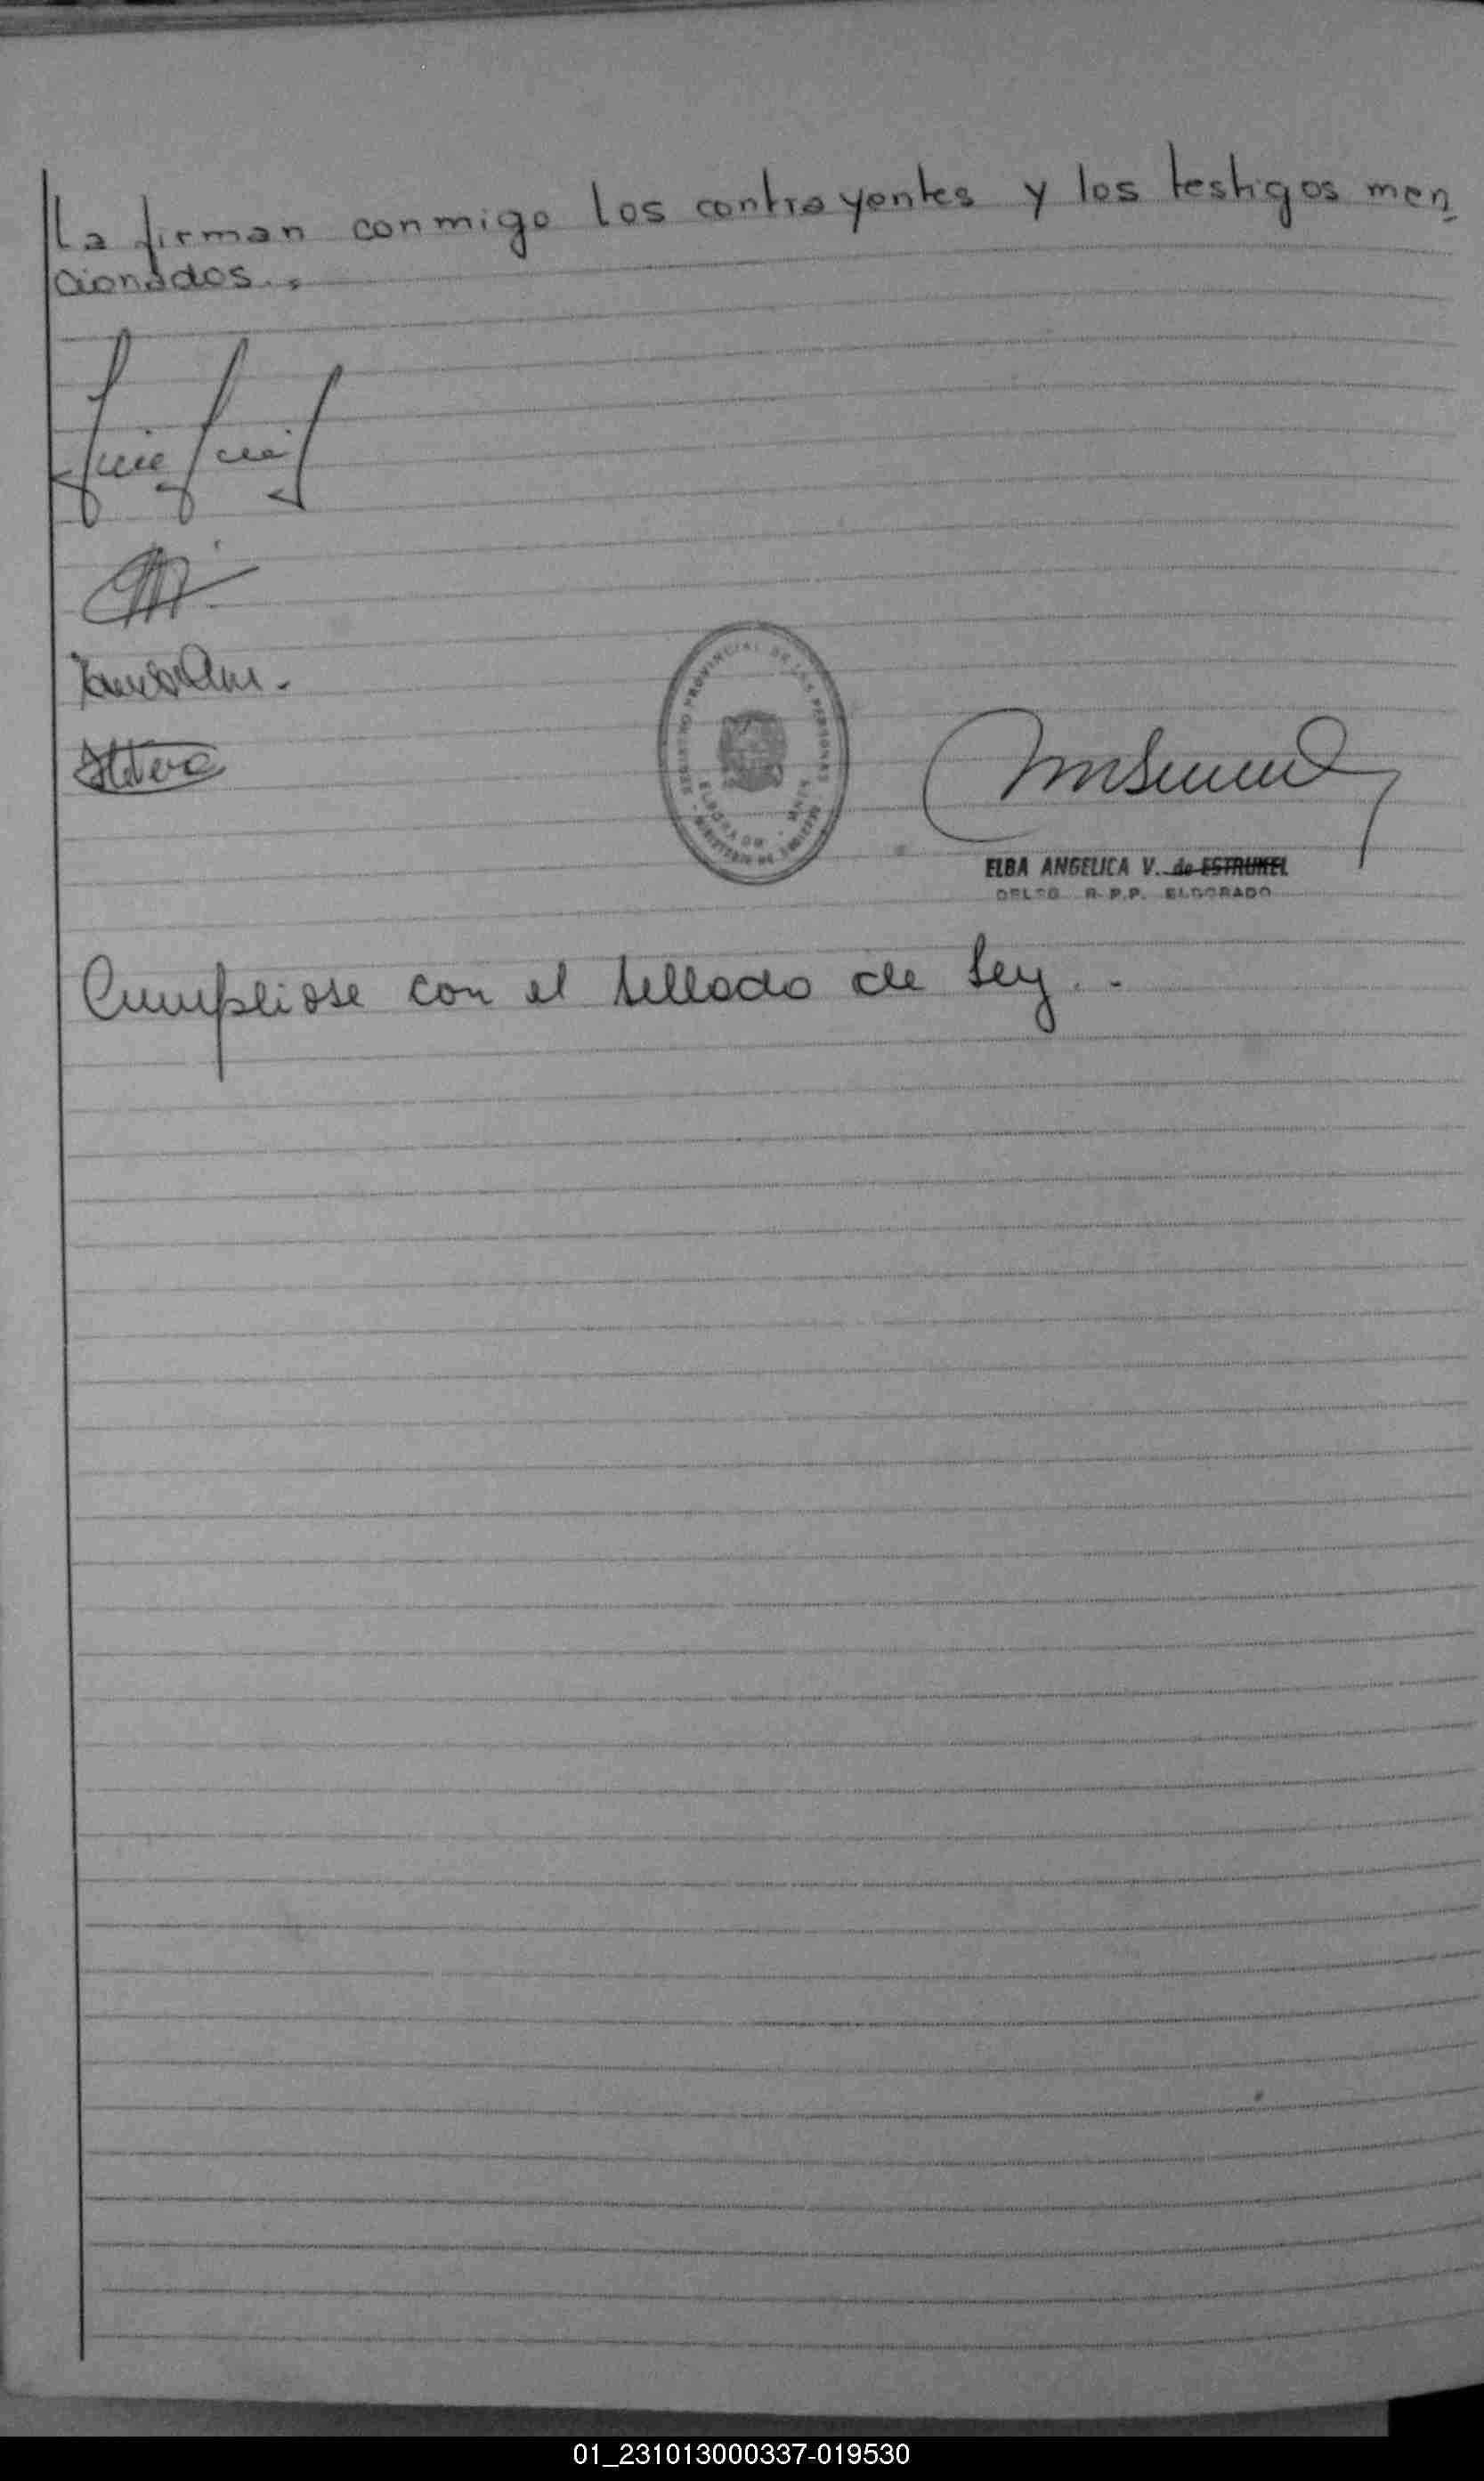 La firman conmigo los contrayentes y los testigos men_
cionados..
REGISTRO PROVINCIAL DE LAS PERSONAS
ELDORADO - MNES
MINISTERIO DE GOBIERNO
ELBA ANGELICA V. de ESTRUKEL
DELEG. R.P.P. ELDORADO
Cumpliose con el sellado de Ley. -
01_231013000337-019530